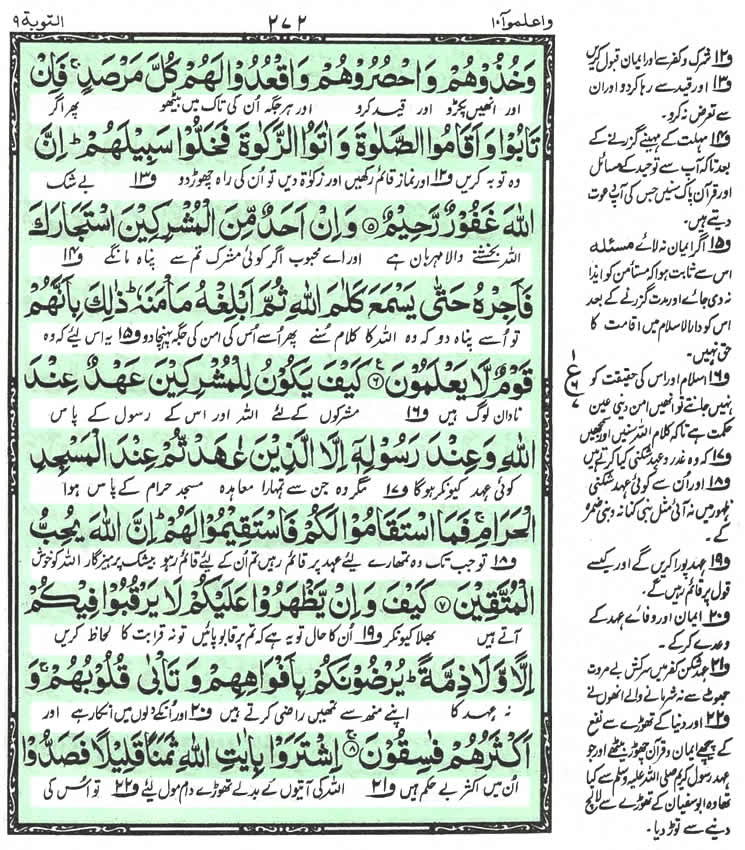 واعلموآ١٠
٢٧٢
التوبة ٩
وَخُذُوْهُمْ وَاحْصُرُوْهُمْ وَاقْعُدُوْا لَهُمْ كُلَّ مَرْصَدٍ ۚ فَاِنْ
اور انھیں پکڑو اور قید کرو اور ہر جگہ اُن کی تاک میں بیٹھو پھر اگر
تَابُوْا وَاَقَامُوا الصَّلٰوةَ وَاٰتَوُا الزَّكٰوةَ فَخَلُّوْا سَبِيْلَهُمْ ؕ اِنَّ
وہ توبہ کریں و۱۲ اور نماز قائم رکھیں اور زکوٰۃ دیں تو اُن کی راہ چھوڑ دو و۱۳ بے شک
اللّٰهَ غَفُوْرٌ رَّحِيْمٌ ۝۵ وَاِنْ اَحَدٌ مِّنَ الْمُشْرِكِيْنَ اسْتَجَارَكَ
اللہ بخشنے والا مہربان ہے اور اے محبوب اگر کوئی مشرک تم سے پناہ مانگے و۱۴
فَاَجِرْهُ حَتّٰى يَسْمَعَ كَلٰمَ اللّٰهِ ثُمَّ اَبْلِغْهُ مَاْمَنَهٗ ؕ ذٰلِكَ بِاَنَّهُمْ
تو اُسے پناہ دو کہ وہ اللہ کا کلام سُنے پھر اُسے اُس کی امن کی جگہ پہنچا دو و۱۵ یہ اس لیئے کہ وہ
قَوْمٌ لَّا يَعْلَمُوْنَ ۝۶ كَيْفَ يَكُوْنُ لِلْمُشْرِكِيْنَ عَهْدٌ عِنْدَ
نادان لوگ ہیں و۱۶ مشرکوں کے لئے اللہ اور اس کے رسول کے پاس
اللّٰهِ وَعِنْدَ رَسُوْلِهٖۤ اِلَّا الَّذِيْنَ عٰهَدْتُّمْ عِنْدَ الْمَسْجِدِ
کوئی عہد کیونکر ہوگا و۱۷ مگر وہ جن سے تمہارا معاہدہ مسجد حرام کے پاس ہوا
الْحَرَامِ ۚ فَمَا اسْتَقَامُوْا لَكُمْ فَاسْتَقِيْمُوْا لَهُمْ ؕ اِنَّ اللّٰهَ يُحِبُّ
و۱۸ تو جب تک وہ تمھارے لیئے عہد پر قائم رہیں تم اُن کے لیئے قائم رہو بیشک پرہیزگار اللہ کو خوش
الْمُتَّقِيْنَ ۝۷ كَيْفَ وَاِنْ يَّظْهَرُوْا عَلَيْكُمْ لَا يَرْقُبُوْا فِيْكُمْ
آتے ہیں بھلا کیونکر و۱۹ اُن کا حال تو یہ ہے کہ تم پر قابو پائیں تو نہ قرابت کا لحاظ کریں
اِلًّا وَّلَا ذِمَّةً ؕ يُرْضُوْنَكُمْ بِاَفْوَاهِهِمْ وَتَاْبٰى قُلُوْبُهُمْ ۚ وَ
نہ عہد کا اپنے منھ سے تمھیں راضی کرتے ہیں و۲۰ اور اُنکے دلوں میں انکار ہے اور
اَكْثَرُهُمْ فٰسِقُوْنَ ۝۸ اِشْتَرَوْا بِاٰيٰتِ اللّٰهِ ثَمَنًا قَلِيْلًا فَصَدُّوْا
اُن میں اکثر بے حکم ہیں و۲۱ اللہ کی آیتوں کے بدلے تھوڑے دام مول لیئے و۲۲ تو اُس کی
و۱۲ شرک و کفر سے اور ایمان قبول کریں
و۱۳ اور قید سے رہا کردو اور ان
سے تعرض نہ کرو۔
و۱۴ مہلت کے مہینے گزرنے کے
بعد تاکہ آپ سے توحید کے مسائل
اور قرآن پاک سنیں جس کی آپ دعوت
دیتے ہیں۔
و۱۵ اگر ایمان نہ لائے مسئلہ
اس سے ثابت ہوا کہ مستأمن کو ایذا
نہ دی جائے اور مدت گزرنے کے بعد
اس کو دارالاسلام میں اقامت کا
حق نہیں۔
و۱۶ اسلام اور اس کی حقیقت کو
نہیں جانتے تو انھیں امن دینی عین
حکمت ہے تاکہ کلام اللہ سنیں اور سمجھیں
و۱۷ کہ وہ غدر و عہد شکنی کیا کرتے ہیں
و۱۸ اور اُن سے کوئی عہد شکنی
ظہور میں نہ آئی مثل بنی کنانہ و بنی ضمرہ
کے۔
و۱۹ عہد پورا کریں گے اور کیسے
قول پر قائم رہیں گے۔
و۲۰ ایمان اور وفائے عہد کے
وعدے کرکے۔
و۲۱ عہد شکن کفر میں سرکش بے مروت
جھوٹ سے نہ شرمانے والے انھوں نے
و۲۲ اور دنیا کے تھوڑے سے نفع
کے پیچھے ایمان و قرآن چھوڑ بیٹھے اور جو
عہد رسول کریم صلی اللہ علیہ وسلم سے کیا
تھا وہ ابوسفیان کے تھوڑے سے لالچ
دینے سے توڑ دیا۔